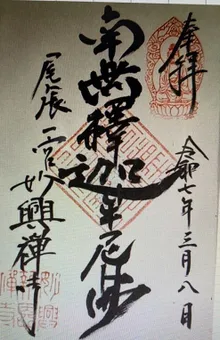 奉拝
令和七年三月八日
南無釋迦牟尼佛
尾張一宮妙興禅寺